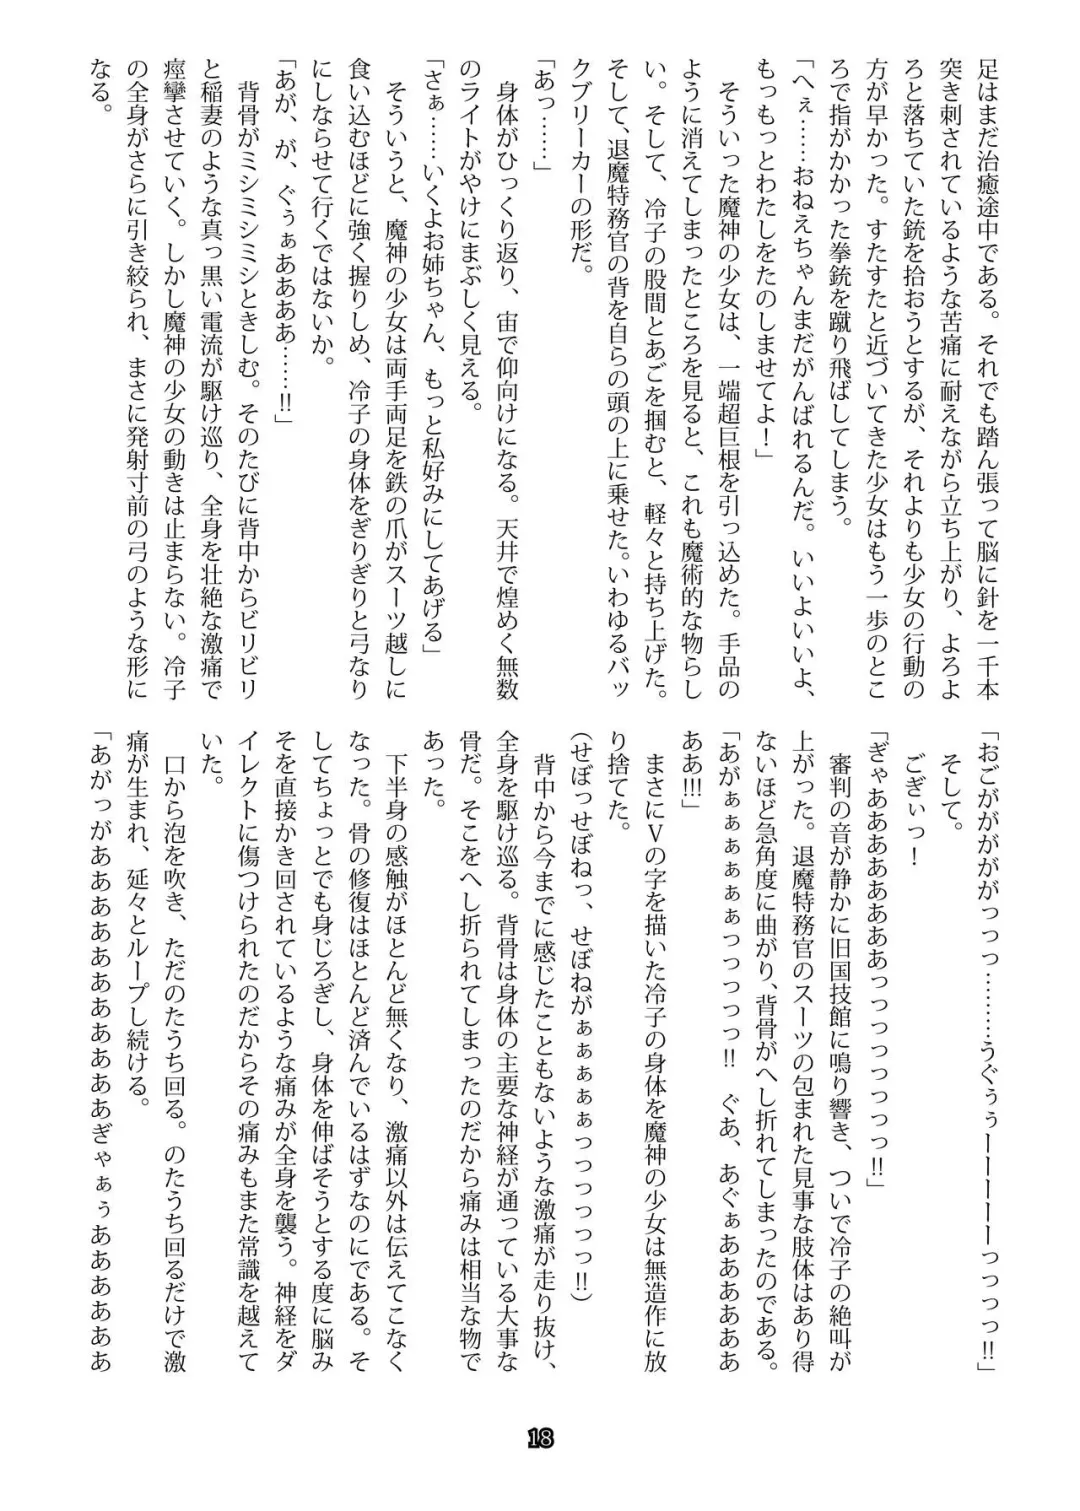 足はまだ治癒途中である。それでも踏ん張って脳に針を一千本
突き刺されているような苦痛に耐えながら立ち上がり、よろよ
ろと落ちていた銃を拾おうとするが、それよりも少女の行動の
方が早かった。すたすたと近づいてきた少女はもう一歩のとこ
ろで指がかかった拳銃を蹴り飛ばしてしまう。
「へぇ……おねえちゃんまだがんばれるんだ。いいよいいよ、
もっもっとわたしをたのしませてよ！」
そういった魔神の少女は、一端超巨根を引っ込めた。手品の
ように消えてしまったところを見ると、これも魔術的な物らし
い。そして、冷子の股間とあごを掴むと、軽々と持ち上げた。
そして、退魔特務官の背を自らの頭の上に乗せた。いわゆるバッ
クブリーカーの形だ。
「あっ……」
身体がひっくり返り、宙で仰向けになる。天井で煌めく無数
のライトがやけにまぶしく見える。
「さぁ……いくよお姉ちゃん、もっと私好みにしてあげる」
そういうと、魔神の少女は両手両足を鉄の爪がスーツ越しに
食い込むほどに強く握りしめ、冷子の身体をぎりぎりと弓なり
にしならせて行くではないか。
「あが、が、ぐぅぁああああ……!!」
背骨がミシミシミシときしむ。そのたびに背中からビリビリ
と稲妻のような真っ黒い電流が駆け巡り、全身を壮絶な激痛で
痙攣させていく。しかし魔神の少女の動きは止まらない。冷子
の全身がさらに引き絞られ、まさに発射寸前の弓のような形に
なる。
「おごがががががっっっ………うぐぅぅーーーーーっっっっ!!」
そして。
ごぎぃっ！
「ぎゃあああああああああっっっっっっっっ!!」
審判の音が静かに旧国技館に鳴り響き、ついで冷子の絶叫が
上がった。退魔特務官のスーツの包まれた見事な肢体はあり得
ないほど急角度に曲がり、背骨がへし折れてしまったのである。
「あがぁぁぁぁぁぁっっっっっ!!　ぐあ、あぐぁああああああ
ああ!!!」
まさにＶの字を描いた冷子の身体を魔神の少女は無造作に放
り捨てた。
（せぼっせぼねっ、せぼねがぁぁぁぁぁっっっっっっ!!）
背中から今までに感じたこともないような激痛が走り抜け、
全身を駆け巡る。背骨は身体の主要な神経が通っている大事な
骨だ。そこをへし折られてしまったのだから痛みは相当な物で
あった。
下半身の感触がほとんど無くなり、激痛以外は伝えてこなく
なった。骨の修復はほとんど済んでいるはずなのにである。そ
してちょっとでも身じろぎし、身体を伸ばそうとする度に脳み
そを直接かき回されているような痛みが全身を襲う。神経をダ
イレクトに傷つけられたのだからその痛みもまた常識を越えて
いた。
口から泡を吹き、ただのたうち回る。のたうち回るだけで激
痛が生まれ、延々とループし続ける。
「あがっがああああああああああああああぎゃぁぅああああああ
18